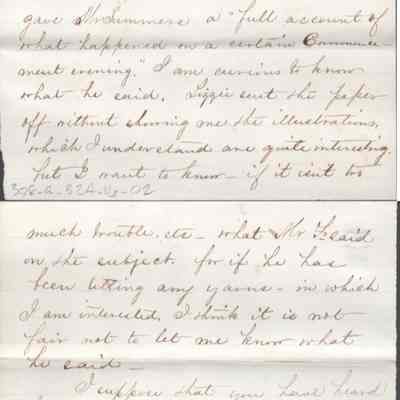 gave Mr Summers a "full account of
what happened on a certain Commence-
ment evening." I am curious to know
what he said. Lizzie sent the paper
off without showing me the illustrations,
which I understand are quite interesting.
but I want to know - if it isnt too
398-G-52A-16-02
much trouble. etc - what Mr F said
on the subject. for if he has
been telling any yarns - in which
I am interested, I think it is not
fair not to let me know what
he said -
I suppose that you have heard